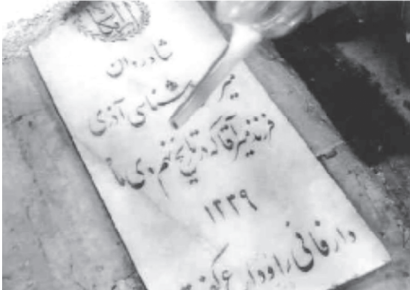 شادروان
میر شناسای آذری
فرزند میرآقا که در تاریخ نهم دی ماه
۱۳۳۹
دار فانی را وداع گفت